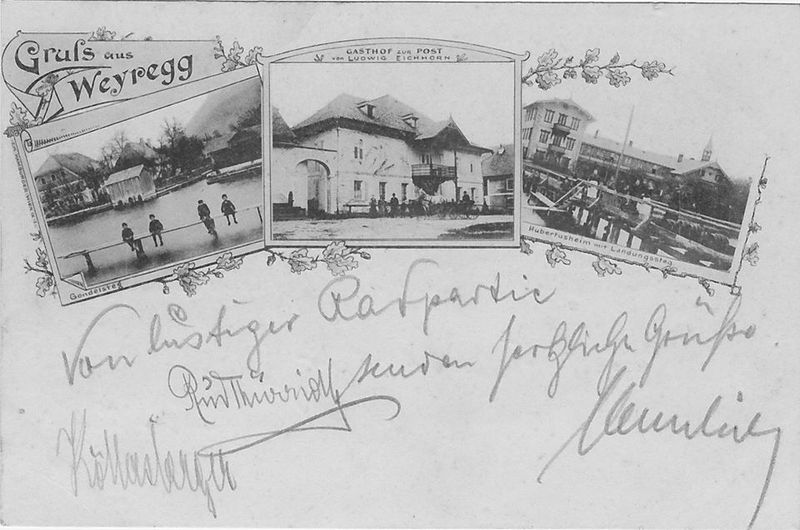 Gruſs aus
Weyregg
GASTHOF ZUR POST
VON LUDWIG EICHHORN
Gondelsteg
Hubertusheim mit Landungssteg
Von lustiger Radpartie
senden herzliche Grüße